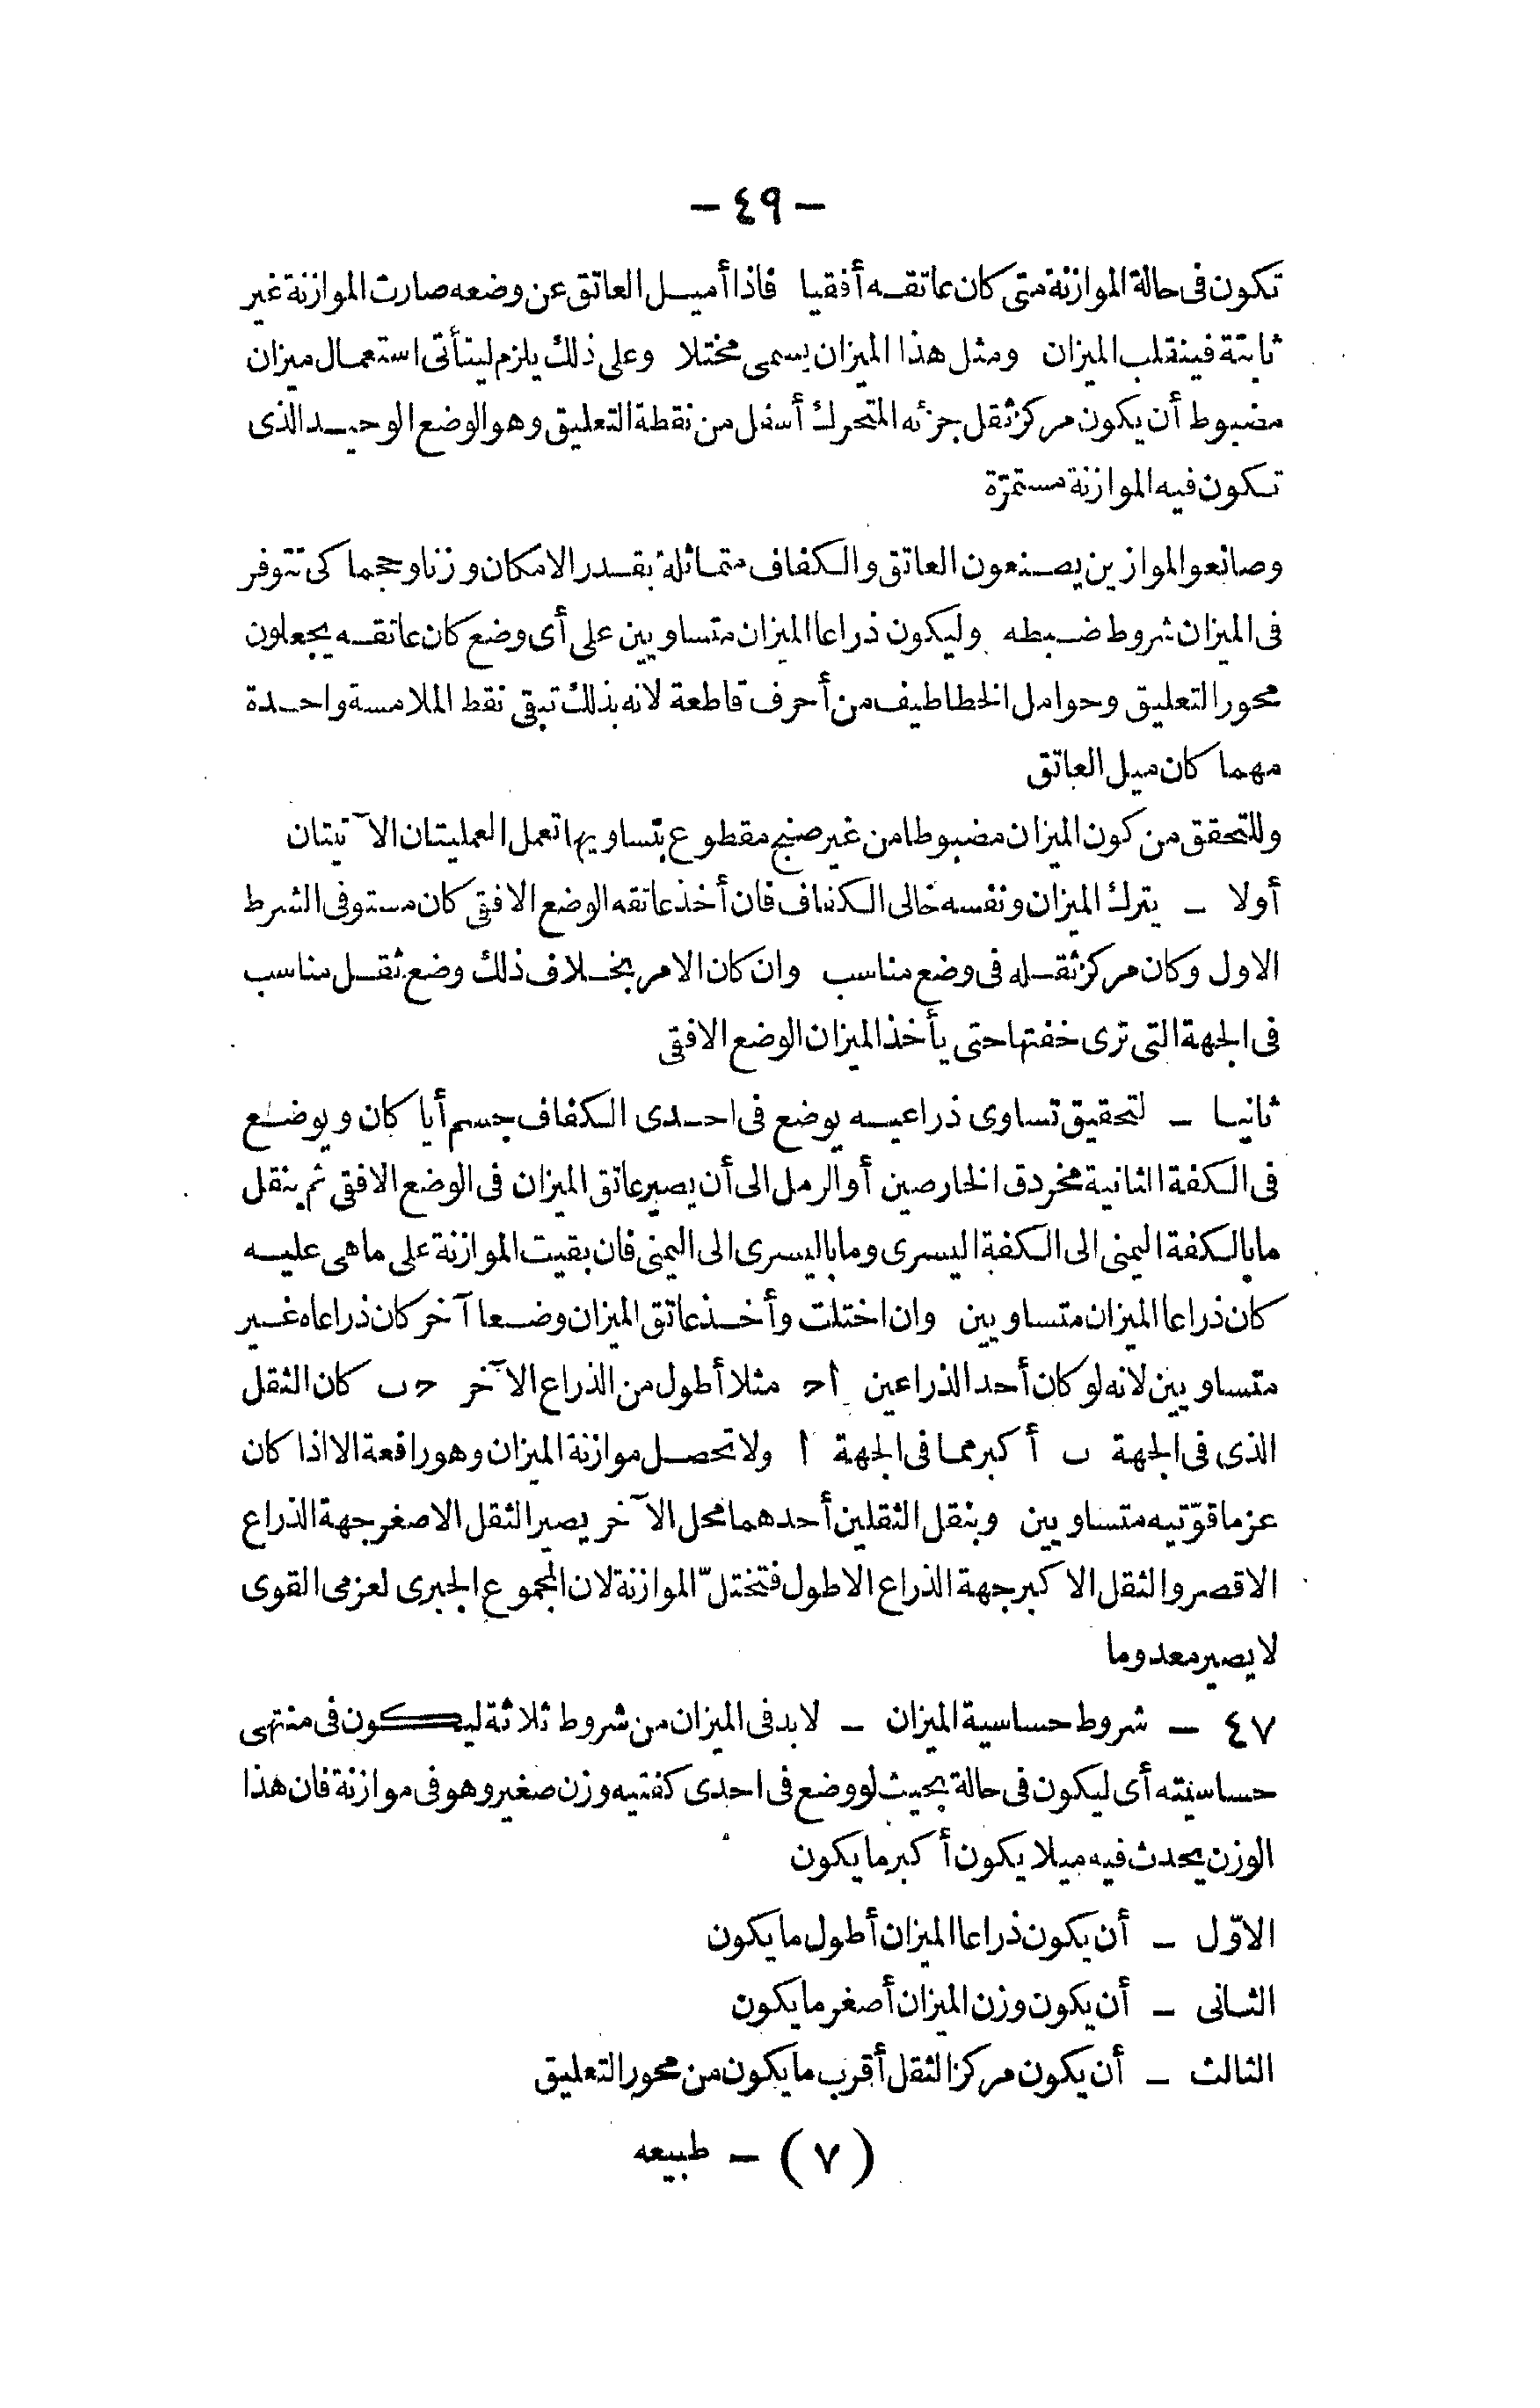 — ٤٩ —
تكون فى حالة الموازنة متى كان عاتقه أفقيا فاذا أميل العاتق عن وضعه صارت الموازنة غير
ثابتة فينقلب الميزان ومثل هذا الميزان يسمى مختلا وعلى ذلك يلزم ليتأتى استعمال ميزان
مضبوط أن يكون مركز ثقل جزئه المتحرك أسفل من نقطة التعليق وهو الوضع الوحيد الذى
تكون فيه الموازنة مستمرّة
وصانعو الموازين يصنعون العاتق والكفاف متماثلة بقدر الامكان وزنا وحجما كى تتوفر
فى الميزان شروط ضبطه وليكون ذراعا الميزان متساويين على أى وضع كان عاتقه يجعلون
محور التعليق وحوامل الخطاطيف من أحرف قاطعة لانه بذلك تبقى نقط الملامسة واحدة
مهما كان ميل العاتق
وللتحقق من كون الميزان مضبوطا من غير صنج مقطوع بتساويها تعمل العمليتان الآتيتان
أولا — يترك الميزان ونفسه خالى الكفاف فان أخذ عاتقه الوضع الافقى كان مستوفى الشرط
الاول وكان مركز ثقله فى وضع مناسب وان كان الامر بخلاف ذلك وضع ثقل مناسب
فى الجهة التى ترى خفتها حتى يأخذ الميزان الوضع الافقى
ثانيا — لتحقيق تساوى ذراعيه يوضع فى احدى الكفاف جسم أيا كان ويوضع
فى الكفة الثانية مخردق الخارصين أو الرمل الى أن يصير عاتق الميزان فى الوضع الافقى ثم ينقل
ما بالكفة اليمنى الى الكفة اليسرى وما باليسرى الى اليمنى فان بقيت الموازنة على ما هى عليه
كان ذراعا الميزان متساويين وان اختلت وأخذ عاتق الميزان وضعا آخر كان ذراعاه غير
متساويين لانه لو كان أحد الذراعين ا ح مثلا أطول من الذراع الآخر ح ب كان الثقل
الذى فى الجهة ب أكبر مما فى الجهة ا ولا تحصل موازنة الميزان وهو رافعة الا اذا كان
عزما قوّتيه متساويين وبنقل الثقلين أحدهما محل الآخر يصير الثقل الاصغر جهة الذراع
الاقصر والثقل الاكبر جهة الذراع الاطول فتختلّ الموازنة لان المجموع الجبرى لعزمى القوى
لا يصير معدوما
٤٧ — شروط حساسية الميزان — لابد فى الميزان من شروط ثلاثة ليكون فى منتهى
حساسيته أى ليكون فى حالة بحيث لو وضع فى احدى كفتيه وزن صغير وهو فى موازنة فان هذا
الوزن يحدث فيه ميلا يكون أكبر ما يكون
الاوّل — أن يكون ذراعا الميزان أطول ما يكون
الثانى — أن يكون وزن الميزان أصغر ما يكون
الثالث — أن يكون مركز الثقل أقرب ما يكون من محور التعليق
(٧) — طبيعه